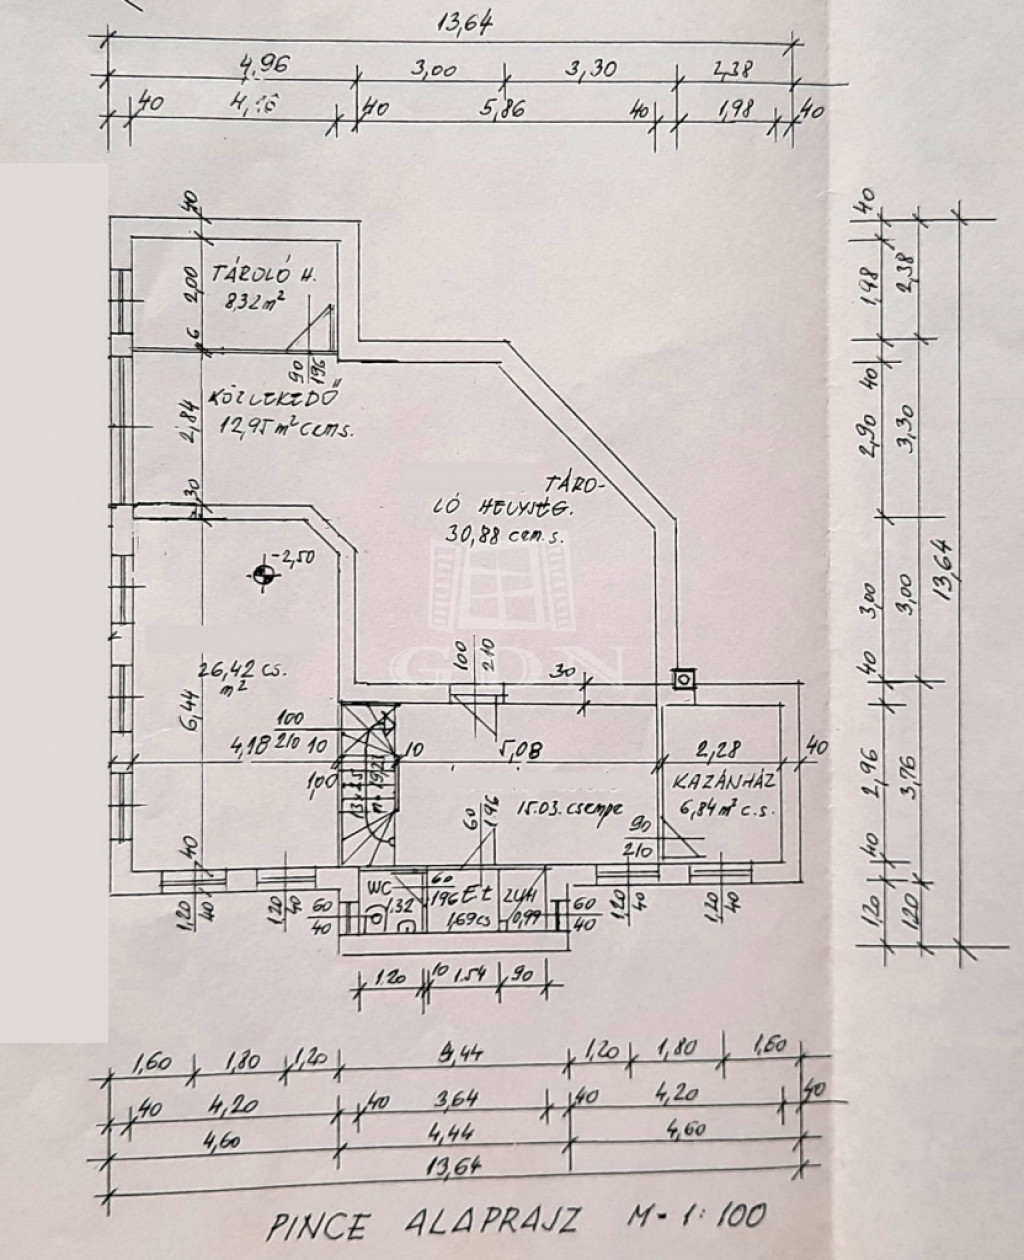 13,64
4,96 3,00 3,30 2,38
40 40 5,86 40 1,98 40
40
TÁROLÓ H.
8,32 m²
2,00
6
90
196
KÖZLEKEDŐ
12,95 m² cem s.
2,84
30
TÁRO-
LÓ HELYSÉG.
30,88 cem. s.
-2,50
GDN
26,42 cs.
m²
6,44
100
210
30
100
210
4,18 10
10
5,08
2,28
40
100
KAZÁNHÁZ
6,84 m² c.s.
15.03. csempe
60
196
90
210
40
1,20
40
1,20
40
WC
1.32
60
196
E.t
1,69 cs
0,99
60
40
60
40
1,20
40
1,20
40
1.20 10 1.54 90
40
1,98
2,38
40
2,90
3,30
3,00
3,00
13,64
40
2,96
3,76
40
1,20
1,20
1,60 1,80 1,20 4,44 1,20 1,80 1,60
40 4,20 40 3,64 40 4,20 40
4,60 4,44 4,60
13,64
PINCE ALAPRAJZ M = 1:100